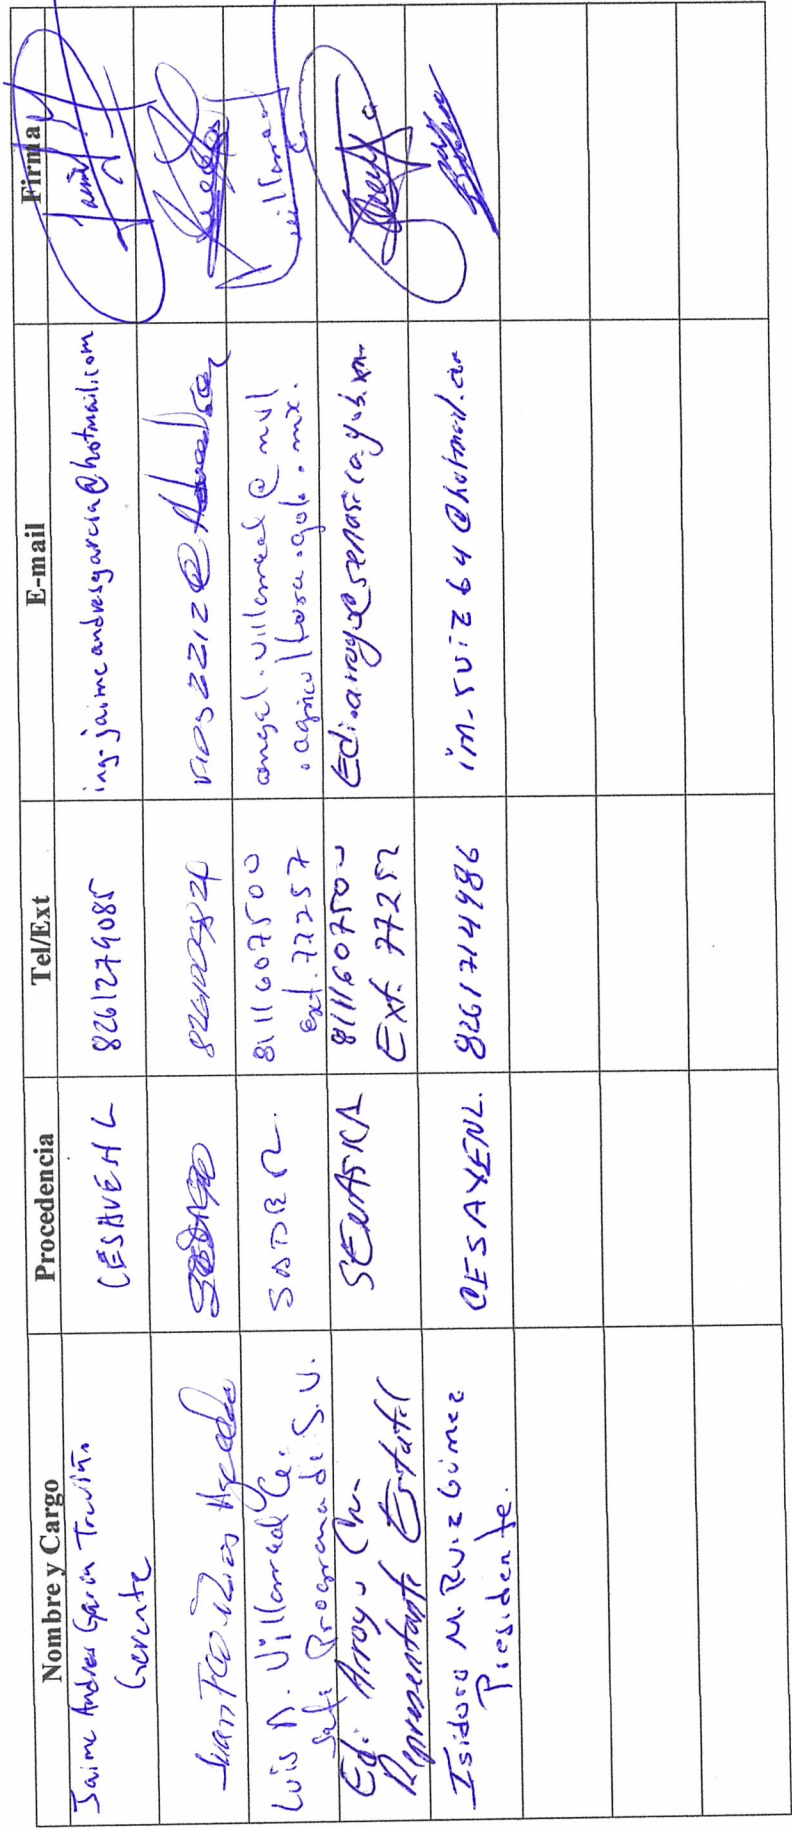 Nombre y Cargo
Procedencia
Tel/Ext
E-mail
Firma
Jaime Andres Garcia Treviño
Gerente
CESAVENL
8261279085
ing-jaimeandresgarcia@hotmail.com
Jaime
Juan Fco. Rios
826100
rios2212@
Luis A. Villarreal
Jefe Programa de S.V.
SADER.
8111607500
ext. 77257
angel.villarreal@nvl
.agricultura.gob.mx.
Villarreal
Edi Arroyo Cruz
Representante Estatal
SENASICA
8111607500
Ext. 77252
Edi.arroyo@senasica.gob.mx
Isidoro M. Ruiz Gómez
Presidente.
CESAVENL.
8261714986
im-ruiz64@hotmail.com